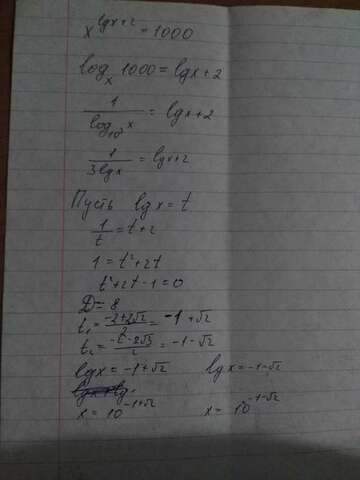 x^{lgx+2} = 1000
log_x 1000 = lgx+2
1/log_{10^3} x = lgx+2
1/3lgx = lgx+2
Пусть lgx = t
1/t = t+2
1 = t²+2t
t²+2t-1=0
D=8
t₁ = (-2+2√2)/2 = -1+√2
t₂ = (-2-2√2)/2 = -1-√2
lgx = -1+√2 lgx = -1-√2
x = 10^{-1+√2} x = 10^{-1-√2}